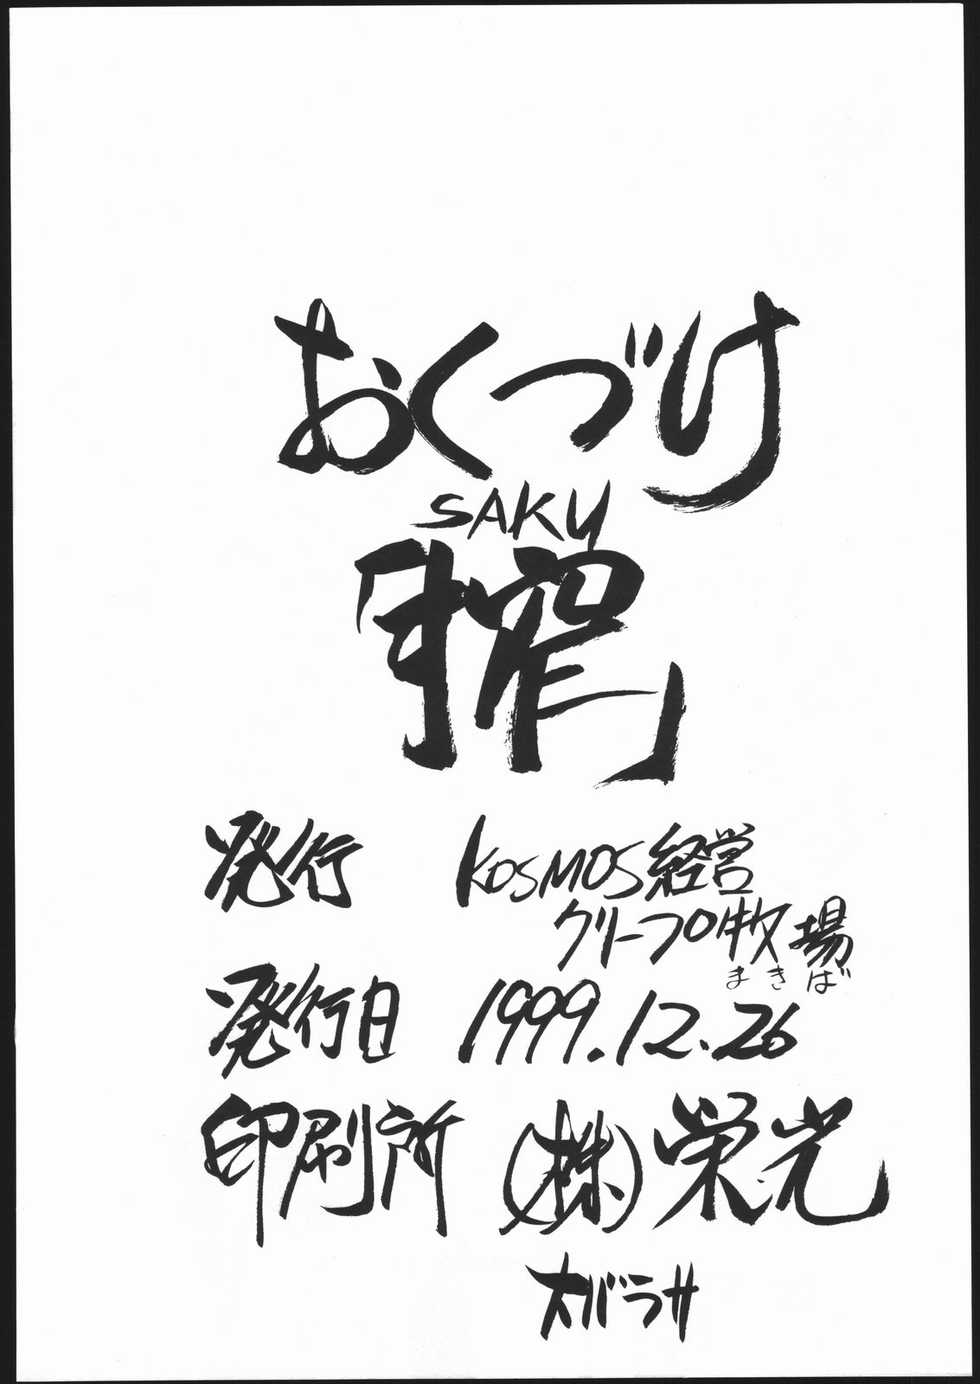 おくづけ
SAKU
「搾」
発行 KOSMOS経営
クリープロ牧場
まきば
発行日 1999.12.26
印刷所 (株)栄光
オバラサ